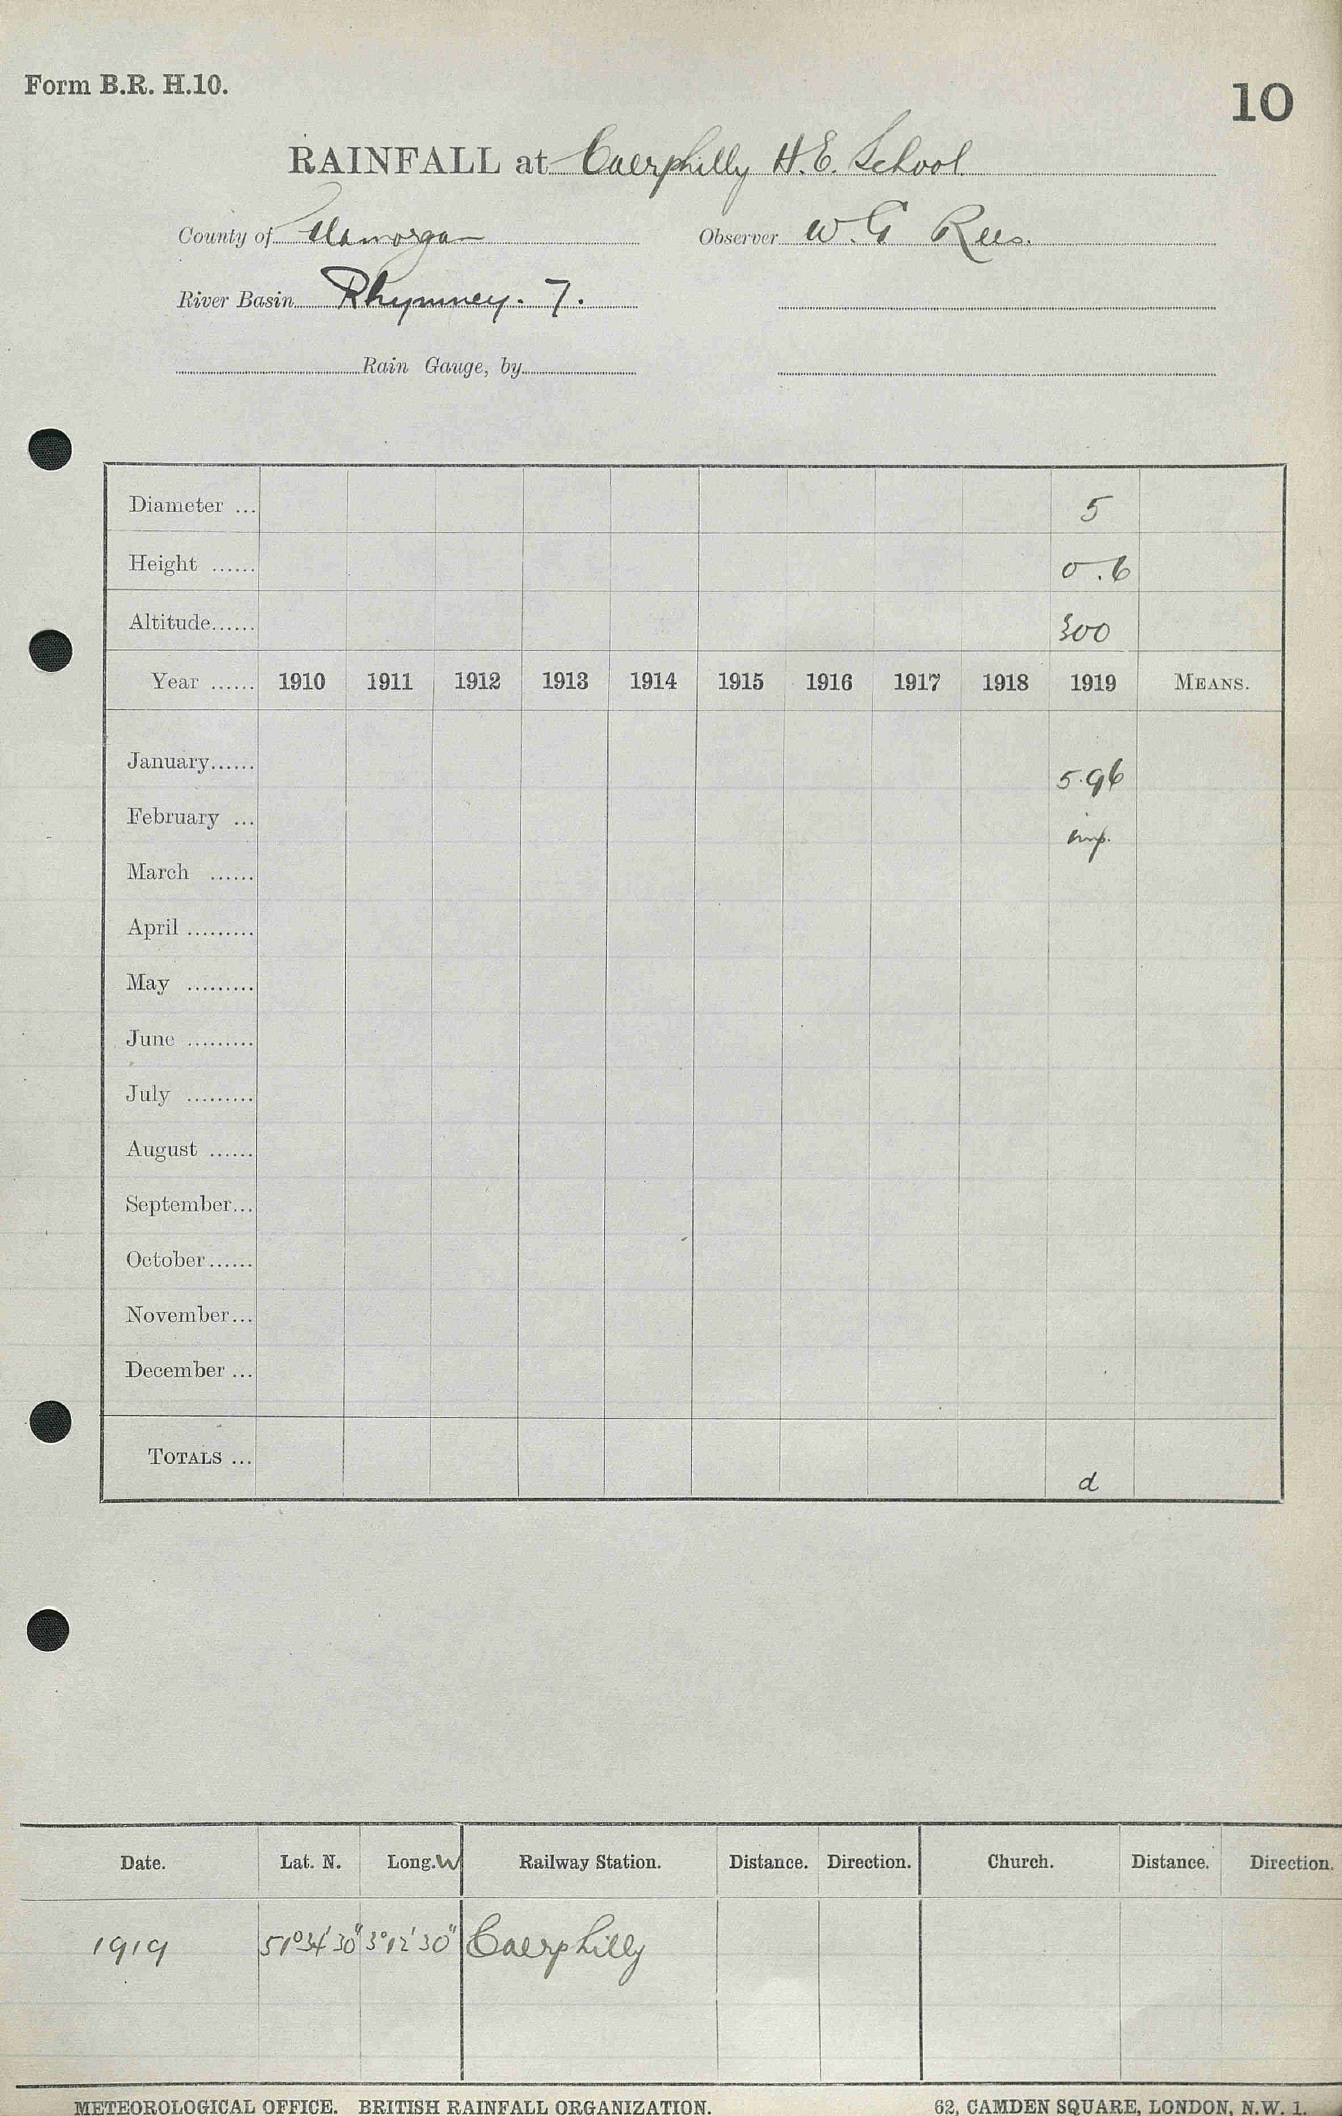 Form B.R. H.10.
10
RAINFALL at Caerphilly H.E. School
County of Glamorgan Observer W. G Rees.
River Basin Rhymney. 7.
Rain Gauge, by
Diameter ... 5
Height ...... 0.6
Altitude...... 300
Year ...... 1910 1911 1912 1913 1914 1915 1916 1917 1918 1919 MEANS.
January...... 5.96
February ... imp.
March ......
April .........
May .........
June .........
July .........
August ......
September...
October......
November...
December ...
TOTALS ... d
Date. Lat. N. Long. W Railway Station. Distance. Direction. Church. Distance. Direction.
1919 51°34'30" 3°12'30" Caerphilly
METEOROLOGICAL OFFICE. BRITISH RAINFALL ORGANIZATION. 62, CAMDEN SQUARE, LONDON, N.W. 1.